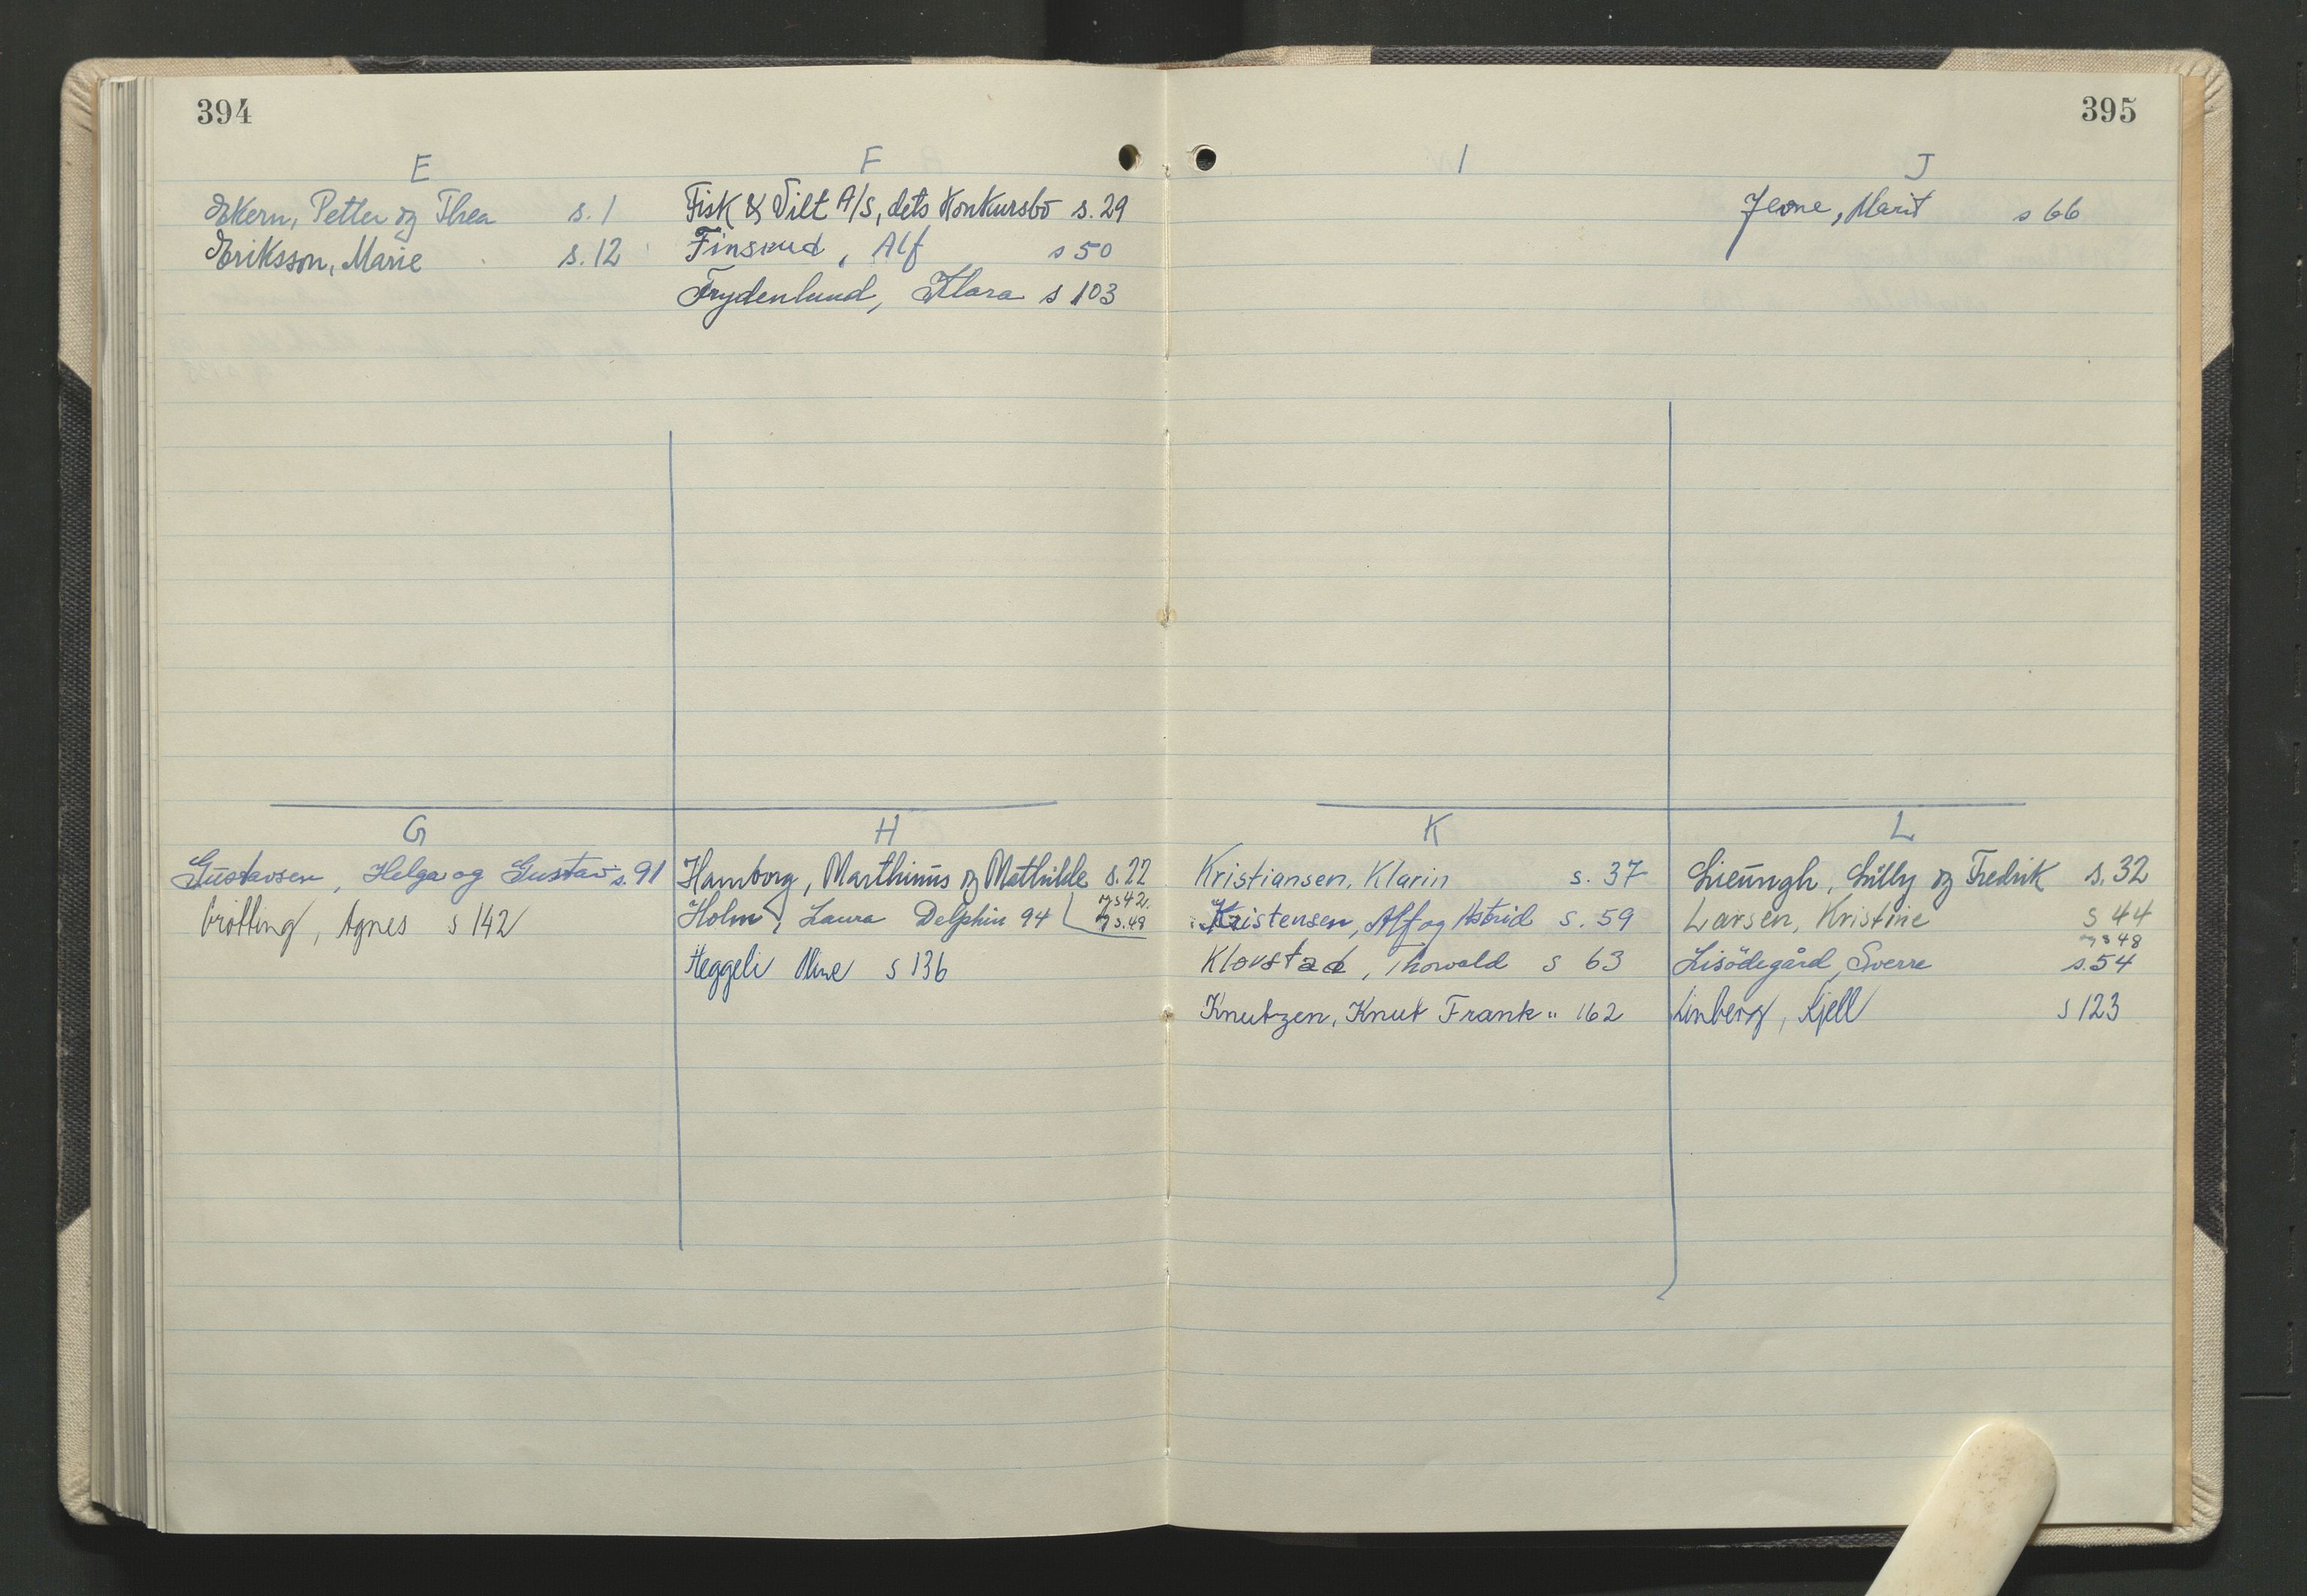 394
E
Ekern, Petter og Thea s. 1
Eriksson, Marie s. 12
F
Fisk & Vilt A/S, dets Konkursbo s. 29
Finsrud, Alf s 50
Frydenlund, Klara s 103
G
Gustavsen, Helga og Gustav s. 91
Grötting, Agnes s 142
H
Hamborg, Marthinus og Mathilde s. 22
og s 42.
og s. 49
Holm, Laura Delphin 94
Heggeli s 136
395
I
J
Marit s 66
K
Kristiansen, Klarin s. 37
Kristensen, Alf og Astrid s. 59
Klovstad, Thorvald s 63
Knutzen, Knut Frank " 162
L
Lieungh, Lilly og Fredrik s. 32
Larsen, Kristine s 44
og s 48
Lisödegård, Sverre s. 54
Linberg, Kjell s 123